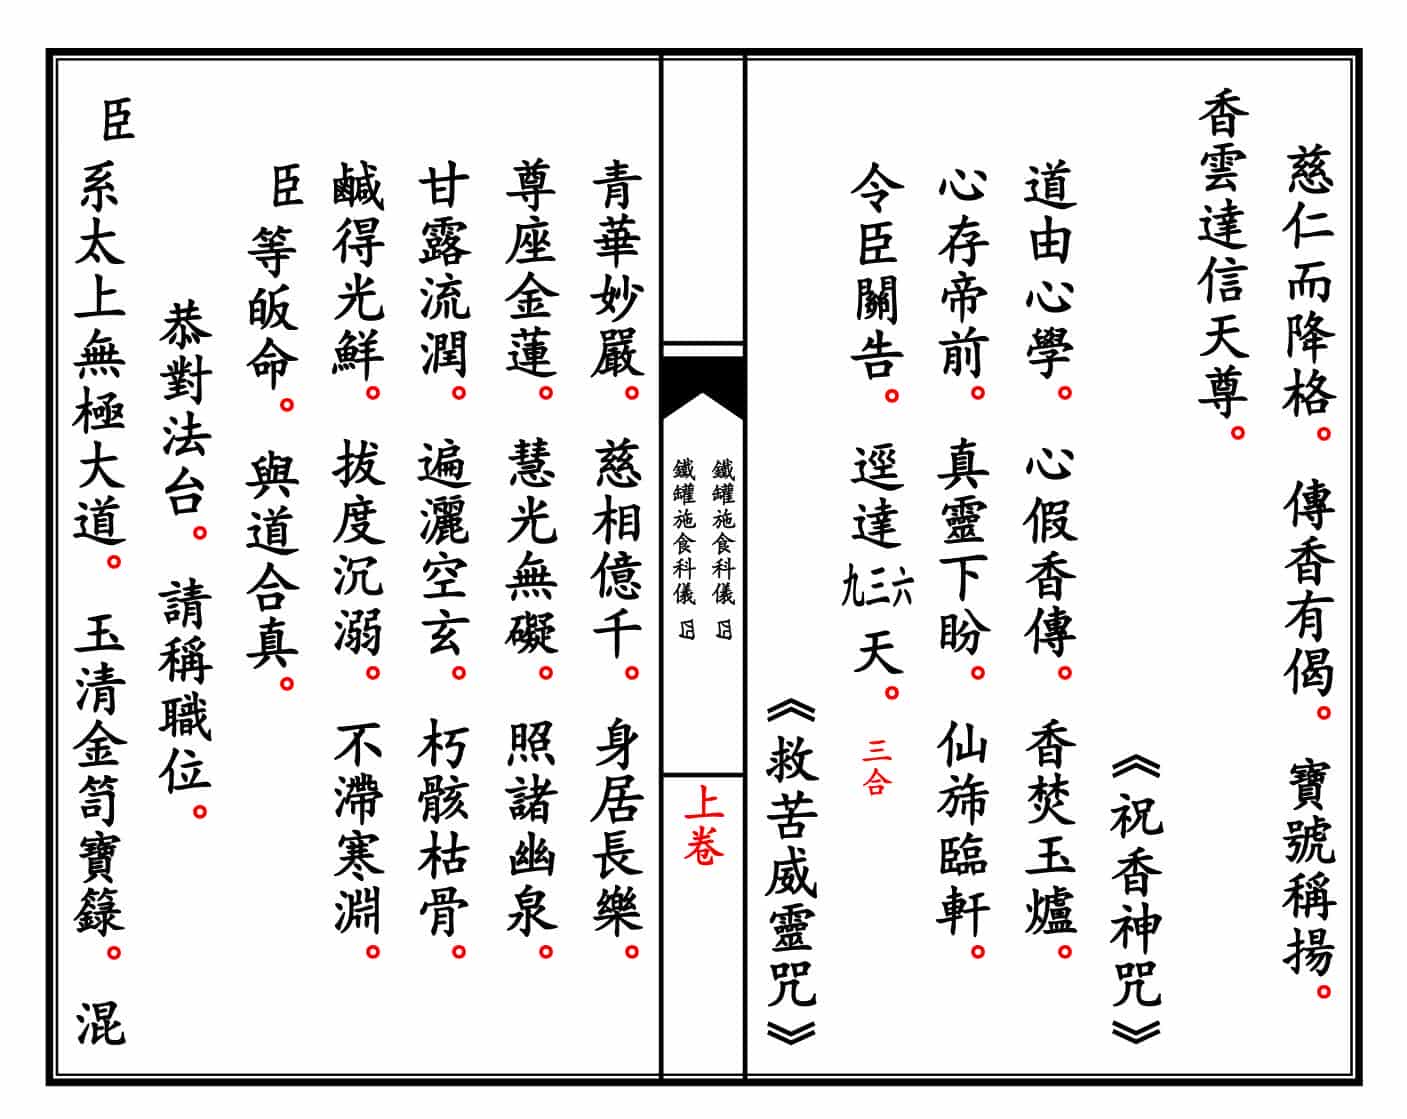 慈仁而降格。傳香有偈。寶號稱揚。
香雲達信天尊。
《祝香神咒》
道由心學。心假香傳。香焚玉爐。
心存帝前。真靈下盼。仙旆臨軒。
令臣關告。逕達九三六天。三合
《救苦威靈咒》
鐵罐施食科儀
鐵罐施食科儀
上卷
青華妙嚴。慈相億千。身居長樂。
尊座金蓮。慧光無礙。照諸幽泉。
甘露流潤。遍灑空玄。朽骸枯骨。
鹹得光鮮。拔度沉溺。不滯寒淵。
臣等皈命。與道合真。
恭對法台。請稱職位。
臣系太上無極大道。玉清金笥寶籙。混